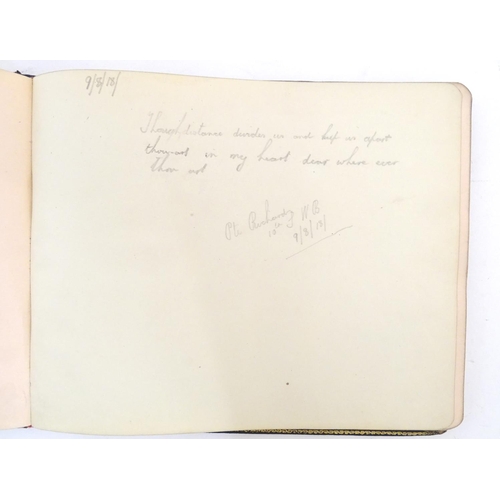 9/8/18/
Though distance divides us and kep us apart
thou art in my heart dear where ever
thou art
Pte Richards W B
9/8/18/